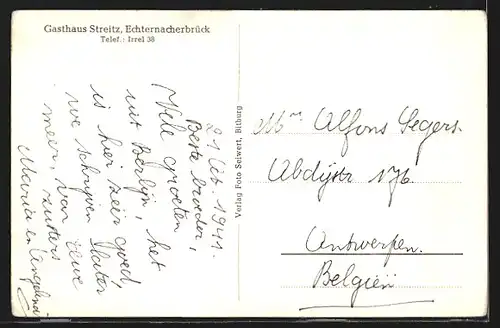 Gasthaus Streitz, Echternacherbrück
Telef.: Irrel 38
21 Oct. 1941.
Beste broeder,
Vele groeten
uit Berlijn, het
is hier zeer goed,
later
we schrijven
meer, van
zusters
Maria en Angelina
Verlag Foto Seiwert, Bitburg
Mr Alfons Segers.
Abdijstr 176.
Antwerpen.
Belgien